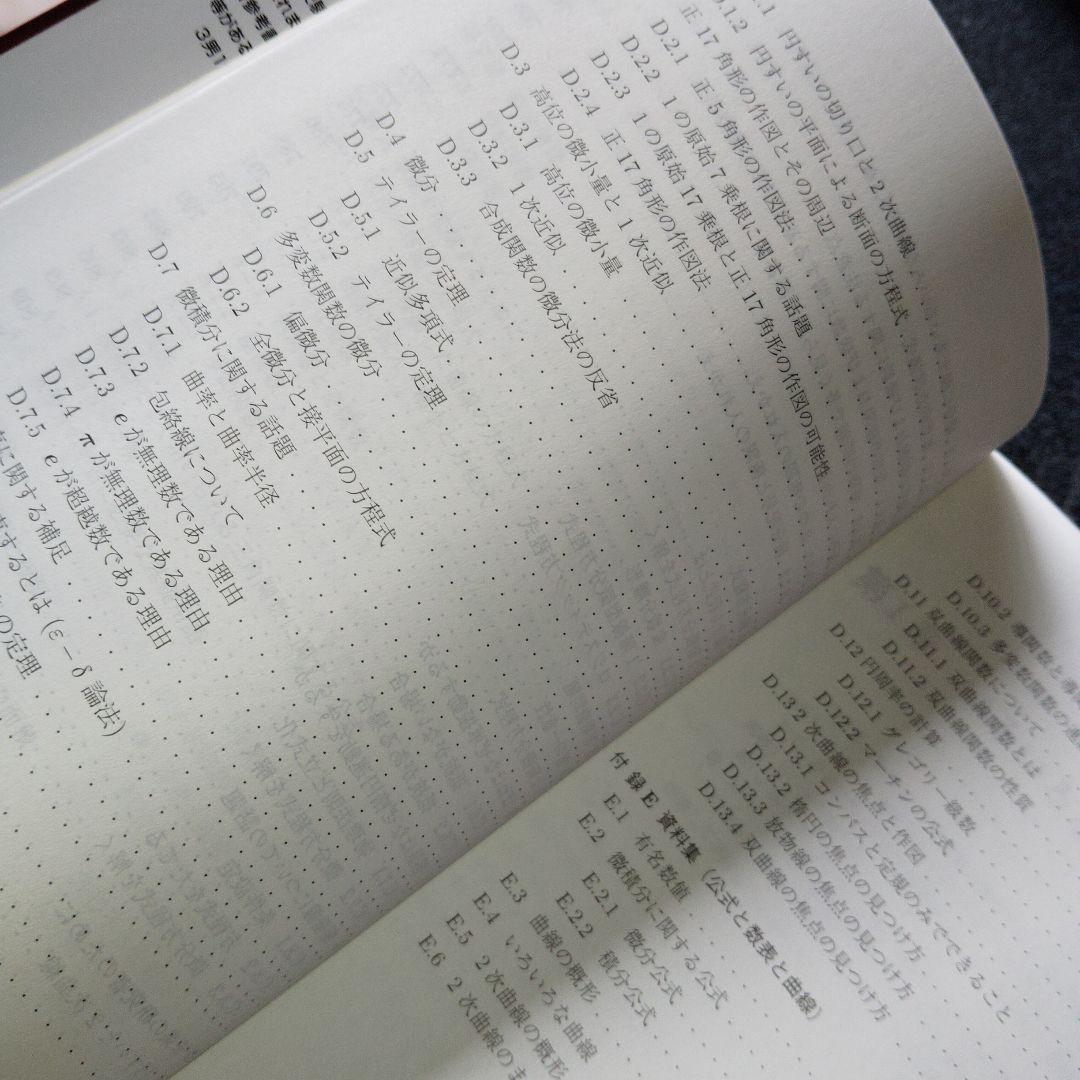 円すいの切り口と2次曲線
D.1.2 円すいの平面による断面の方程式
正17角形の作図とその周辺
D.2.1 正5角形の作図法
D.2.2 1の原始7乗根に関する話題
D.2.3 1の原始17乗根と正17角形の作図の可能性
D.2.4 正17角形の作図法
D.3 高位の微小量と1次近似
D.3.1 高位の微小量
D.3.2 1次近似
D.3.3 合成関数の微分法の反省
D.4 微分
D.5 テイラーの定理
D.5.1 近似多項式
D.5.2 テイラーの定理
D.6 多変数関数の微分
D.6.1 偏微分
D.6.2 全微分と接平面の方程式
D.7 微積分に関する話題
D.7.1 曲率と曲率半径
D.7.2 包絡線について
D.7.3 eが無理数である理由
D.7.4 πが無理数である理由
D.7.5 eが超越数である理由
に関する補足
束するとは (ε-δ論法)
の定理
D.10.2 導関数と導
D.10.3 多変数関数の連
D.11 双曲線関数について
D.11.1 双曲線関数とは
D.11.2 双曲線関数の性質
D.12 円周率の計算
D.12.1 グレゴリー級数
D.12.2 マーチンの公式
D.13 2次曲線の焦点と作図
D.13.1 コンパスと定規のみでできること
D.13.2 楕円の焦点の見つけ方
D.13.3 放物線の焦点の見つけ方
D.13.4 双曲線の焦点の見つけ方
付録E 資料集 (公式と数表と曲線)
E.1 有名数値
E.2 微積分に関する公式
E.2.1 微分公式
E.2.2 積分公式
E.3 曲線の概形
E.4 いろいろな曲線
E.5 2次曲線の概形
E.6 2次曲線のま